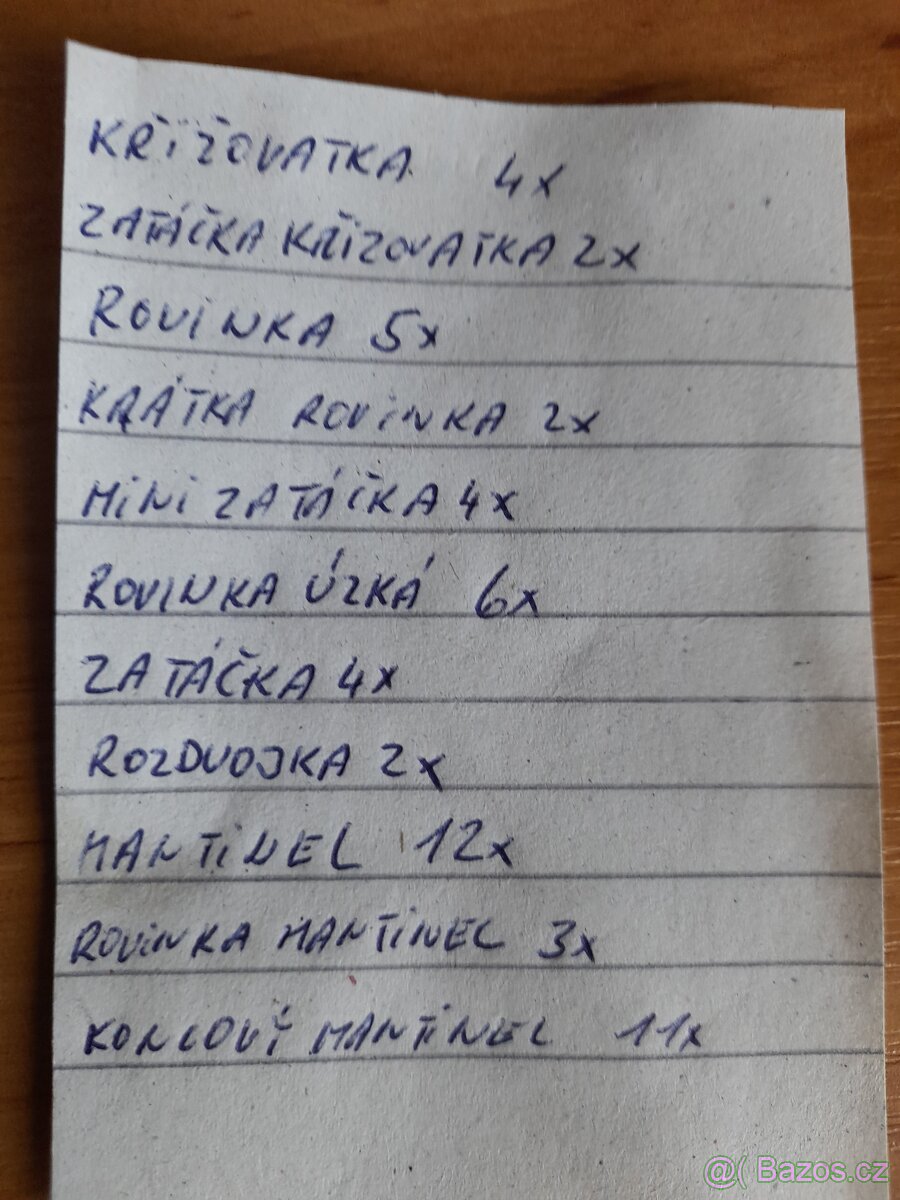 KŘIŽOVATKA 4x
ZATÁČKA KŘIZOVATKA 2x
ROVINKA 5x
KRÁTKA ROVINKA 2x
MINI ZATÁČKA 4x
ROVINKA ÚZKÁ 6x
ZATÁČKA 4x
ROZDVOJKA 2x
MANTINEL 12x
ROVINKA MANTINEL 3x
KONCOVÝ MANTINEL 11x
@( Bazos.cz